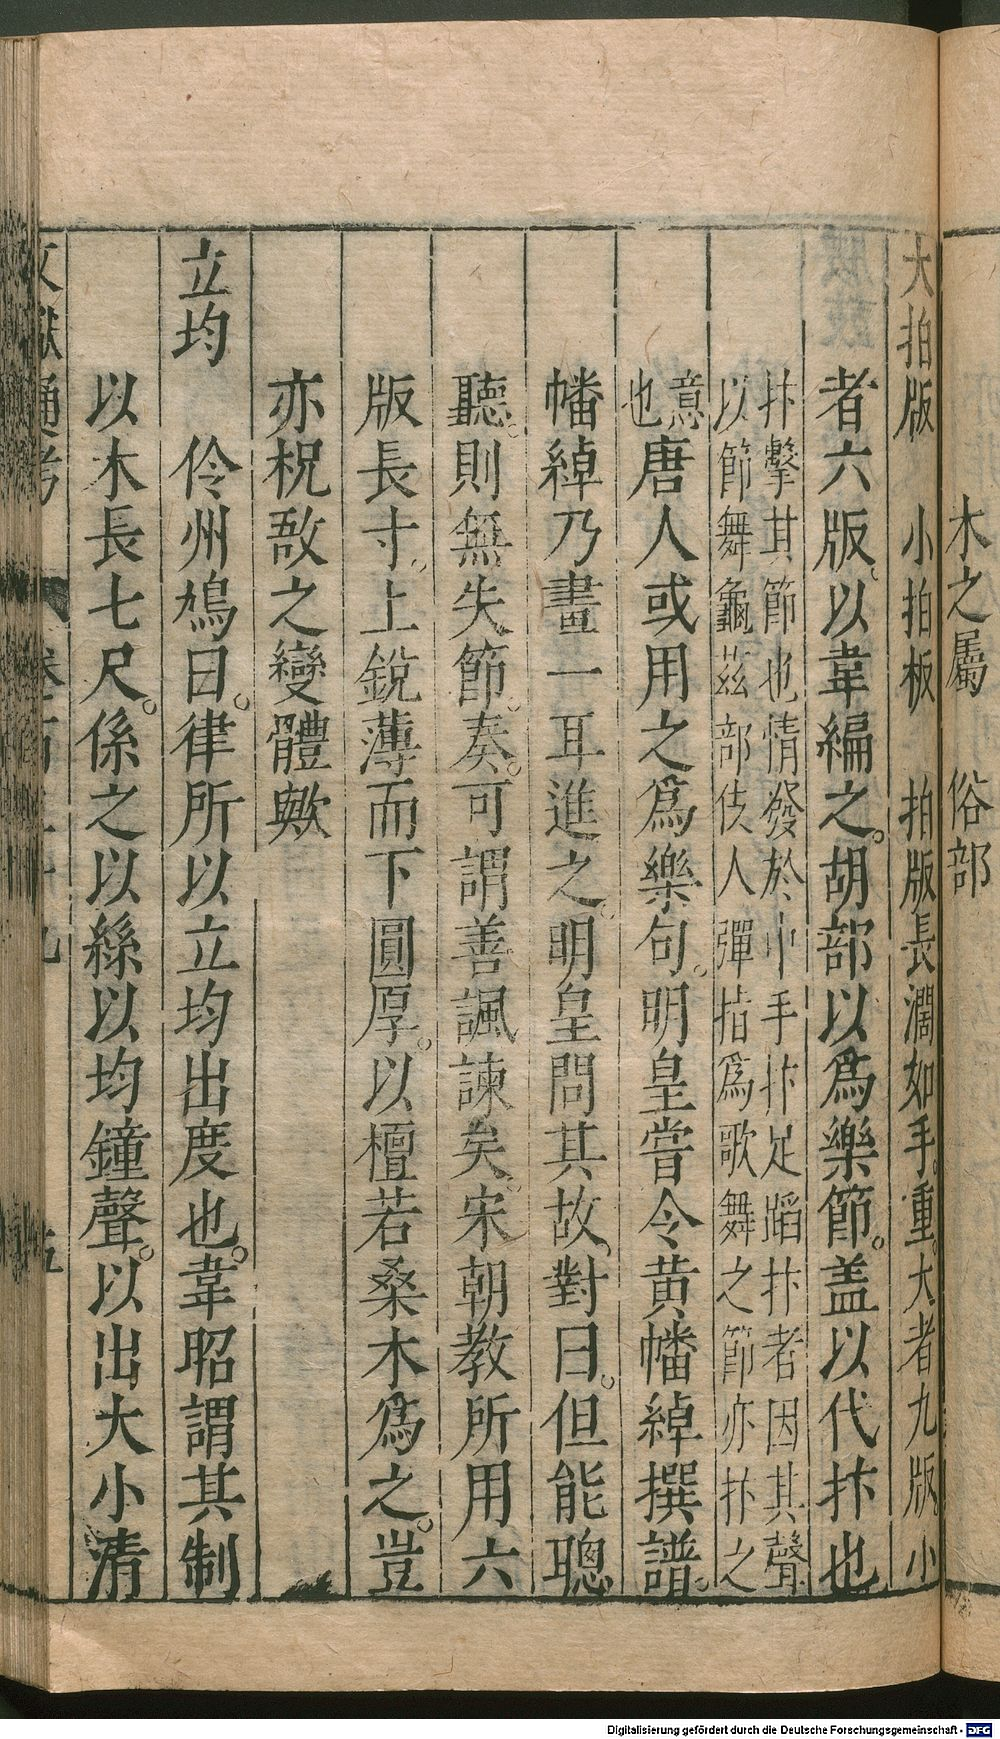 木之屬 俗部
大拍版 小拍板 拍版長濶如手。重。大者九版。小
者六版。以韋編之。胡部以爲樂節。盖以代抃也
抃擊其節也情發於中手抃足蹈抃者因其聲
以節舞龜茲部伎人彈指爲歌舞之節亦抃之
意
也
唐人或用之爲樂句。明皇嘗令黄幡綽撰譜。
幡綽乃畫一耳進之。明皇問其故。對曰。但能聰
聽。則無失節。奏。可謂善諷諫矣。宋朝教所用六
版長寸。上銳薄而下圓厚。以檀若桑木爲之。豈
亦柷敔之變體歟
立均
伶州鳩曰。律所以立均出度也。韋昭謂其制
以木長七尺。係之以絲以均鐘聲。以出大小清
文獻通考 卷百三十九 五
Digitalisierung gefördert durch die Deutsche Forschungsgemeinschaft - DFG